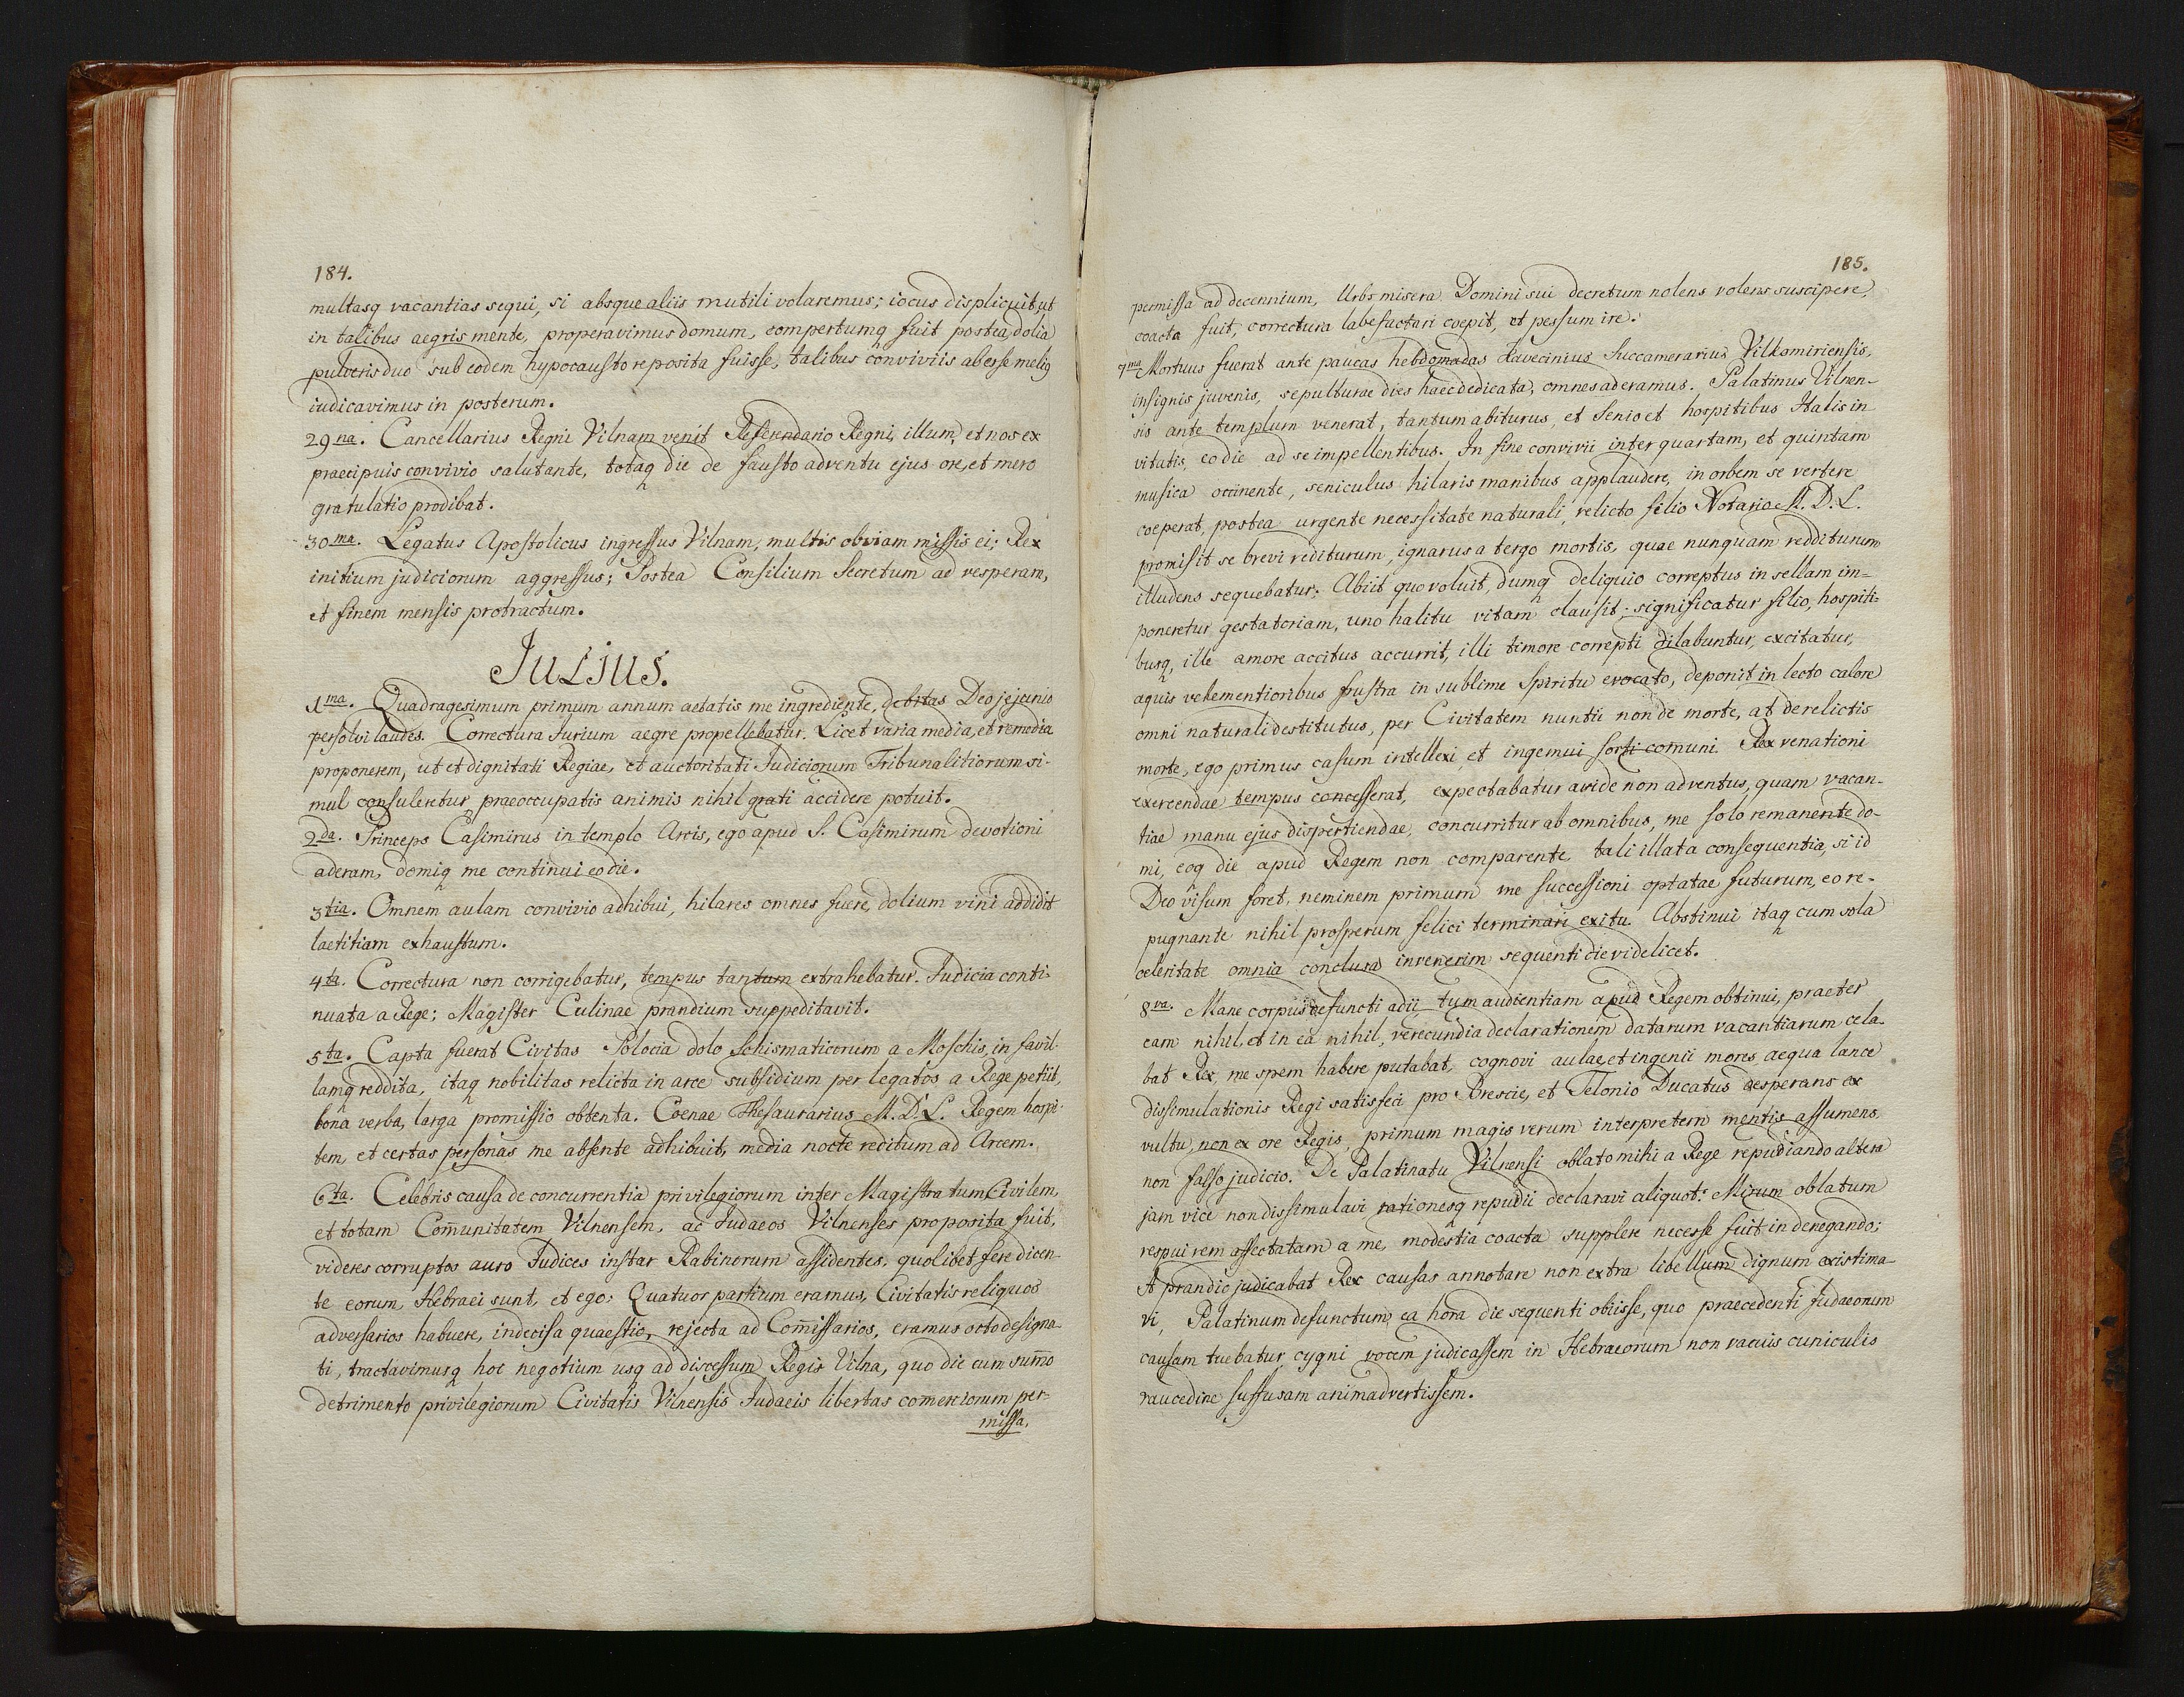 184.
multasq vacantias sequi, si absque aliis mutili volaremus; iocus displicuit, ut
in talibus aegris mente, properavimus domum, compertumq fuit postea, dolia
pulveris duo sub eodem hypocausto reposita fuisse, talibus conviviis abesse melig
iudicavimus in posterum.
29na. Cancellarius Regni Vilnam venit Referendario Regni, illum, et nos ex
praecipuis convivio salutante, totaq die de fausto adventu ejus ore, et mero
gratulatio prodibat.
30ma. Legatus Apostolicus ingressus Vilnam, multis obviam missis ei; Rex
initium judiciorum aggressus; Postea Consilium Secretum ad vesperam,
et finem mensis protractum.
Julius.
1ma. Quadragesimum primum annum aetatis me ingrediente, debitas Deo jejunio
persolvi laudes. Correctura Jurium aegre propellebatur. Licet varia media, et remedia
proponerem, ut et dignitati Regiae, et auctoritati Judiciorum Tribunalitiorum si-
mul consuleretur, praeoccupatis animis nihil grati accidere potuit.
2da. Princeps Casimirus in templo Arcis, ego apud S. Casimirum devotioni
aderam, domiq me continui eo die.
3tia. Omnem aulam convivio adhibui, hilares omnes fuere, dolium vini addidit
laetitiam exhaustum.
4ta. Correctura non corrigebatur, tempus tantum extrahebatur. Judicia conti-
nuata a Rege; Magister Culinae prandium suppeditavit.
5ta. Capta fuerat Civitas Polocia dolo Schismaticorum a Moschis, in favil-
lamq reddita, itaq nobilitas relicta in arce subsidium per legatos a Rege petiit,
bona verba, larga promissio obtenta. Coenae Thesaurarius M. D. L. Regem hospi-
tem, et certas personas me absente adhibuit, media nocte reditum ad Arcem.
6ta. Celebris causa de concurrentia privilegiorum inter Magistratum Civilem,
et totam Com̄unitatem Vilnensem, ac Judaeos Vilnenses proposita fuit,
videres corruptos auro Judices instar Rabinorum assidentes, quolibet fere dicen-
te eorum, Hebraei sunt, et ego; Quatuor partium eramus, Civitatis reliquos
adversarios habuere, indecisa quaestio, rejecta ad Com̄issarios, eramus octo designa-
ti, tractavimusq hoc negotium usq ad discessum Regis Vilna, quo die cum sum̄o
detrimento privilegiorum Civitatis Vilnensis Judaeis libertas comerciorum per-
missa,
185.
permissa ad decennium, Urbs misera Domini sui decretum nolens volens suscipere,
coacta fuit, correctura labefactari coepit, et pessum ire.
7ma Mortuus fuerat ante paucas hebdomadas Ravecinius Succamerarius Vilkomiriensis,
insignis juvenis, sepulturae dies haec dedicata, omnes aderamus. Palatinus Vilnen-
sis ante templum venerat, tantum abiturus, et Senio et hospitibus Italis in-
vitatis, eo die ad se impellentibus. In fine convivii inter quartam, et quintam
musica occinente, seniculus hilaris manibus applaudere, in orbem se vertere
coeperat, postea urgente necessitate naturali, relicto filio Notario M. D. L.
promisit se brevi rediturum, ignarus a tergo mortis, quae nunquam redditurum
illudens sequebatur; Abiit quo voluit, dumq deliquio correptus in sellam im-
poneretur gestatoriam, uno halitu vitam clausit; significatur filio, hospiti-
busq, ille amore accitus accurrit, illi timore correpti dilabuntur, excitatur,
aquis vehementioribus frustra in sublime Spiritu evocato, deponit in lecto calore
omni naturali destitutus, per Civitatem nuntii non de morte, at derelictis
morte, ego primus casum intellexi, et ingemui sorti comuni. Rex venationi
exercendae tempus concesserat, expectabatur avide non adventus, quam vacan-
tiae manu ejus dispertiendae, concurritur ab omnibus, me solo remanente do-
mi, eoq die apud Regem non comparente, tali illata consequentia, si id
Deo visum foret, neminem primum me successioni optatae futurum, eo re-
pugnante nihil prosperum felici terminari exitu. Abstinui itaq cum sola
celeritate omnia conclusa invenerim sequenti die videlicet.
8va. Mane corpus defuncti adii, tum audientiam apud Regem obtinui, praeter
eam nihil, et in ea nihil, verecundia declarationem datarum vacantiarum cela-
bat Rex, me spem habere putabat, cognovi aulae et ingenii mores, aequa lance
dissimulationis Regi satisfeci pro Brescie, et Telonio Ducatus desperans ex
vultu, non ex ore Regis, primum magis verum interpretem mentis assumens,
non falso judicio. De Palatinatu Vilnensi oblato mihi a Rege repudiando altera
jam vice non dissimulavi rationesq repudii declaravi aliquot. Mirum oblatum
respui rem affectatam a me, modestia coacta supplere necesse fuit in denegando;
A prandio judicabat Rex causas annotare non extra libellum dignum existima-
vi, Palatinum defunctum ea hora die sequenti obiisse, quo praecedenti Judaeorum
causam tuebatur, cygni vocem judicassem in Hebraeorum non vacuis cuniculis
raucedine suffusam animadvertissem.